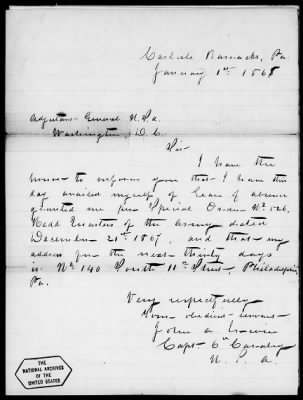 Carlisle Barracks, Pa.
January 1st 1868
Adjutant General U.S.A.
Washington, D.C.
Sir
I have the
honor to inform you that I have this
day availed myself of leave of absence
granted me per Special Orders No 526.
Head Quarters of the Army, dated
December 21st 1867, and that my
address for the next thirty days
is No 140 South 11th Street, Philadelphia,
Pa.
Very respectfully
Your obedient servant
John A. Irwin
Capt 6th Cavalry
U.S.A.
THE
NATIONAL ARCHIVES
OF THE
UNITED STATES